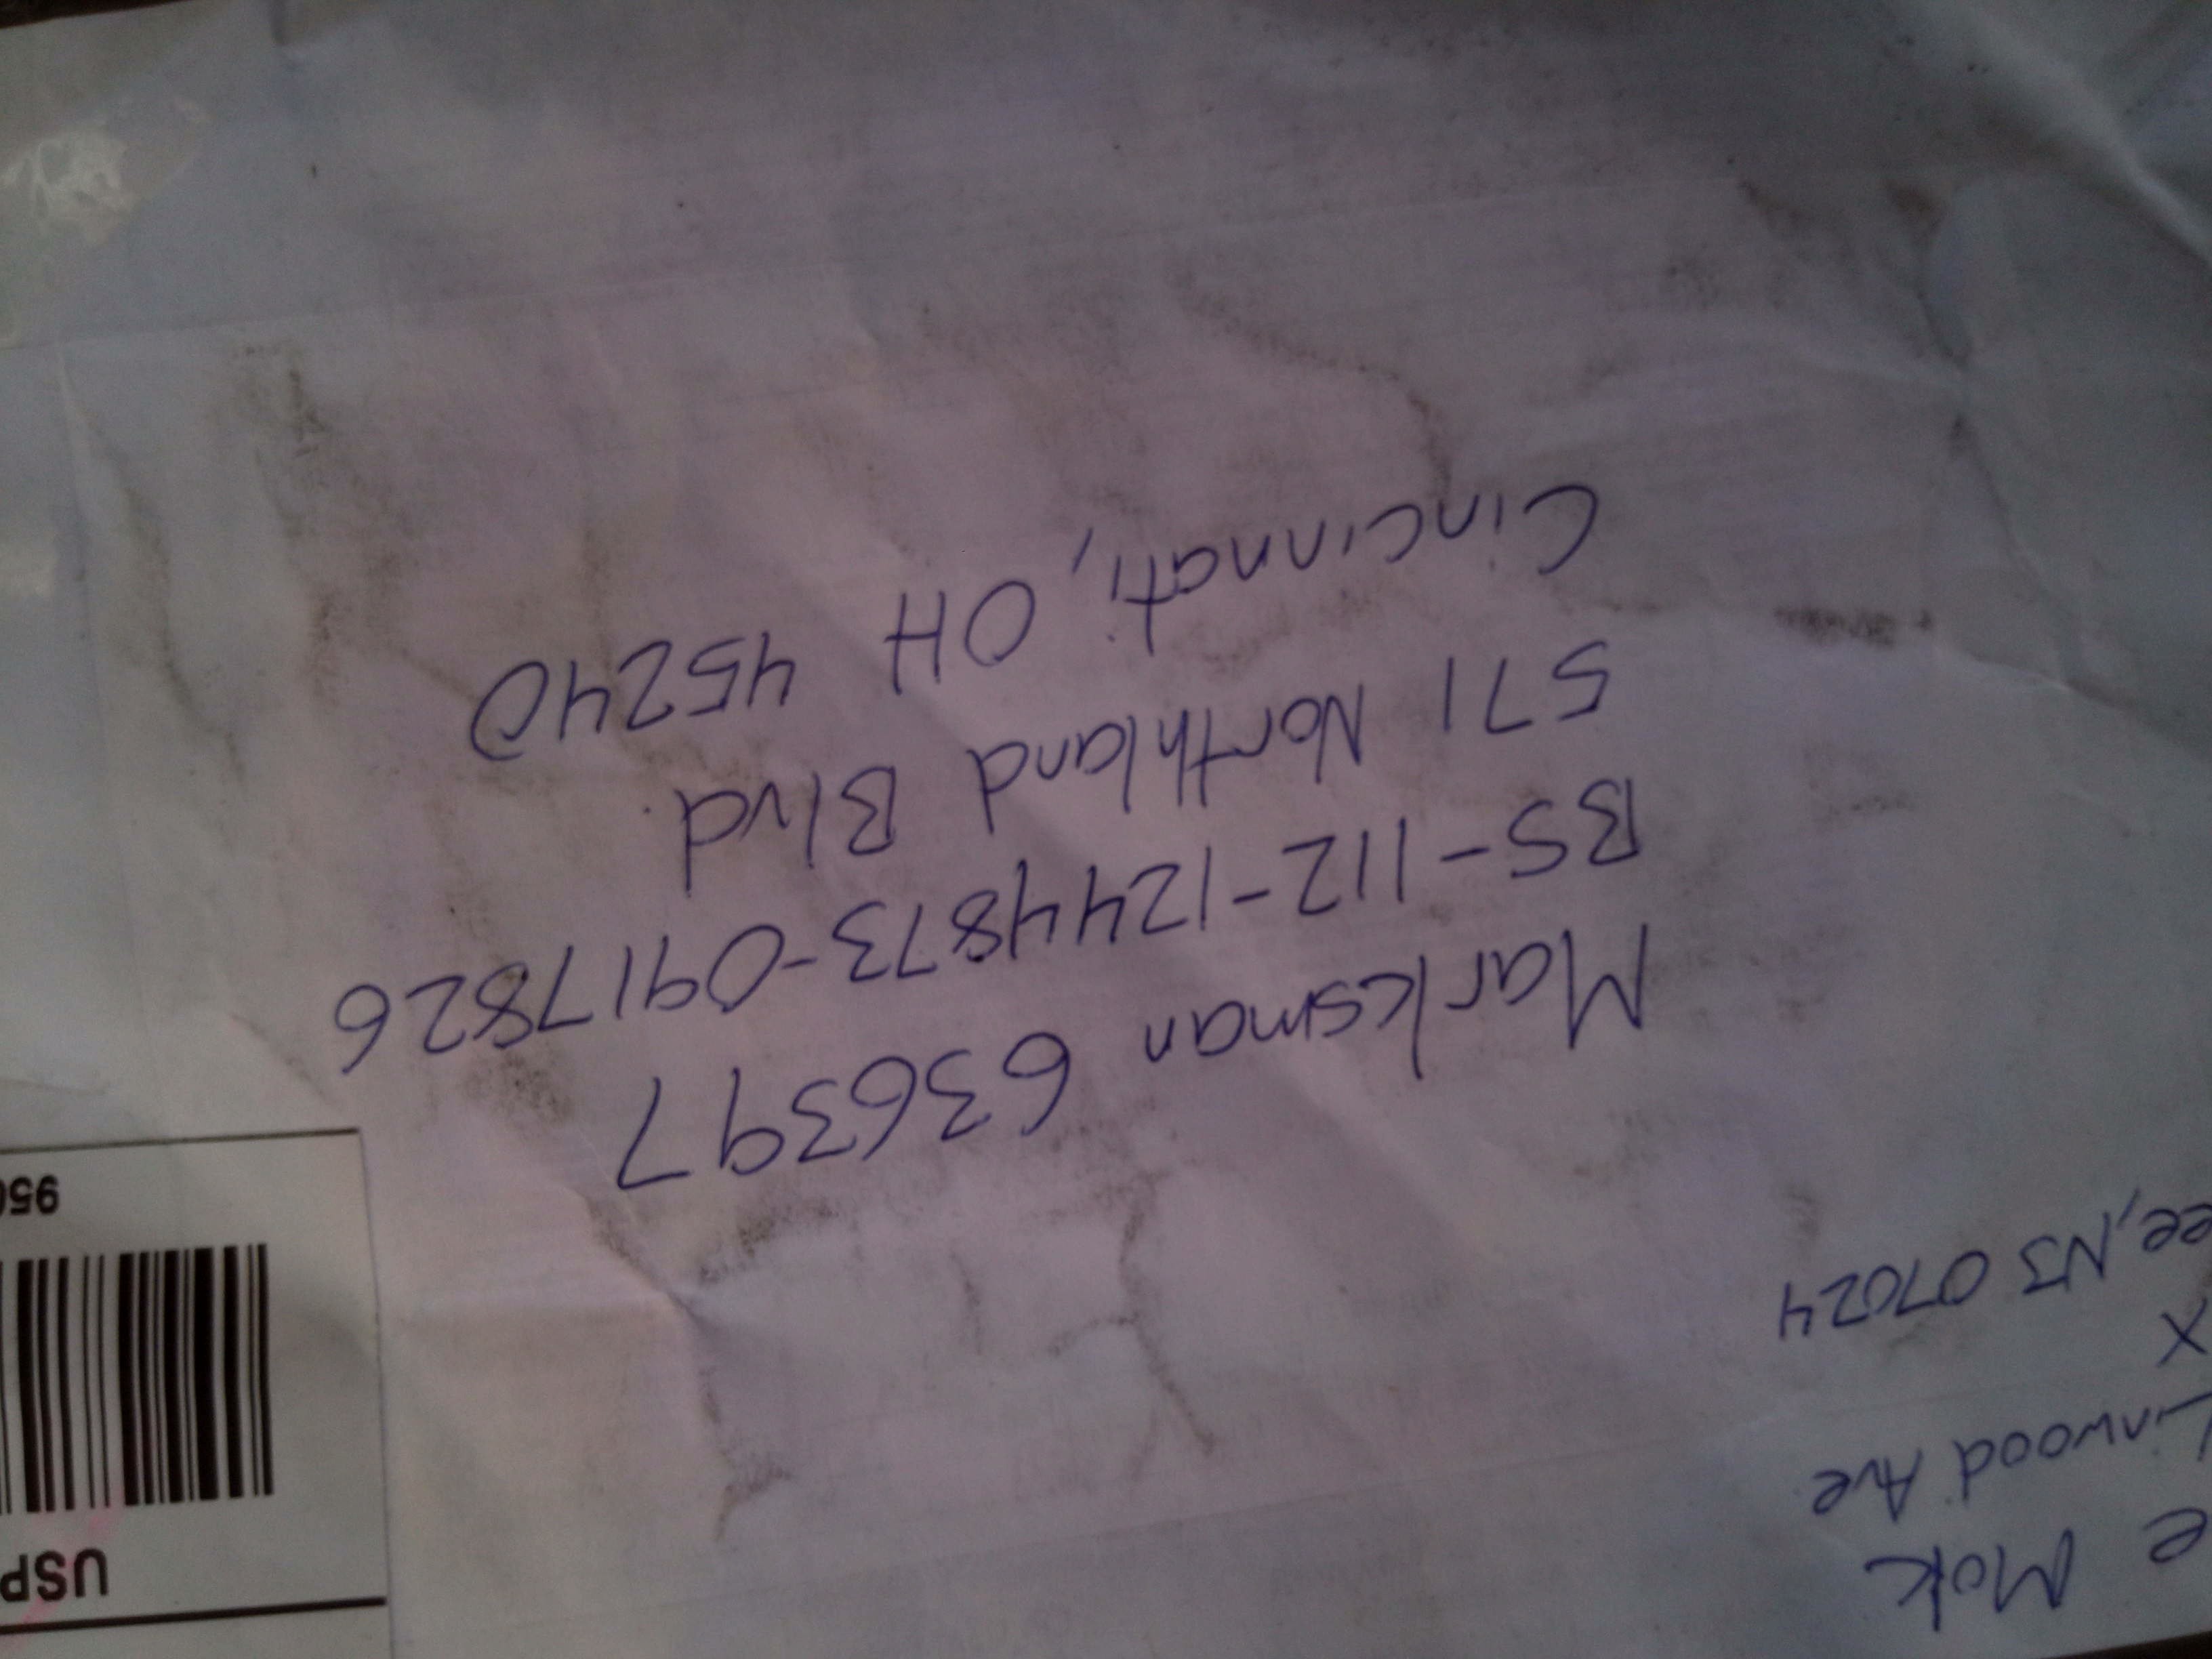 e Mok
Linwood Ave
X
ee, NJ 07024
USP
950
Marksman 636397
BS-112-1244873-0917826
571 Northland Blvd
Cincinnati, OH 45240